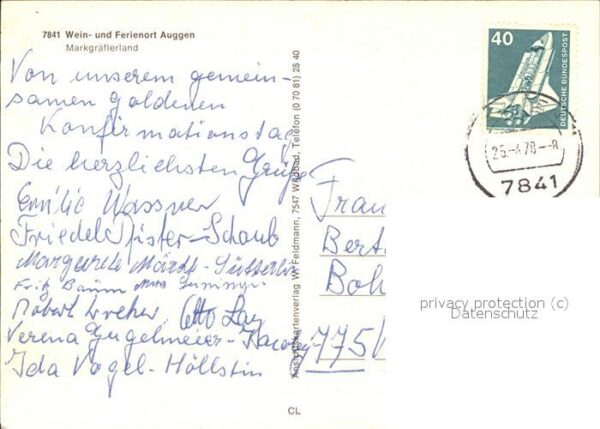 7841 Wein- und Ferienort Auggen
Markgräflerland
Von unserem gemein-
samen Goldenen
Konfirmationstag
Die herzlichsten Grüße
Emilie Wassner
Friedel Pfister-Schaub
Margarete Märdt-Sütterlin
Fritz Baum
Robert Otto
Verena Gugelmeier
Ida Vogel-Höllstin
Ansichtskartenverlag W. Feldmann, 7547 Wildbad, Telefon (0 70 81) 26 40
CL
40
DEUTSCHE BUNDESPOST
25.-4.78.-8
7841
Frau
Bert
Boh
775
privacy protection (c)
Datenschutz